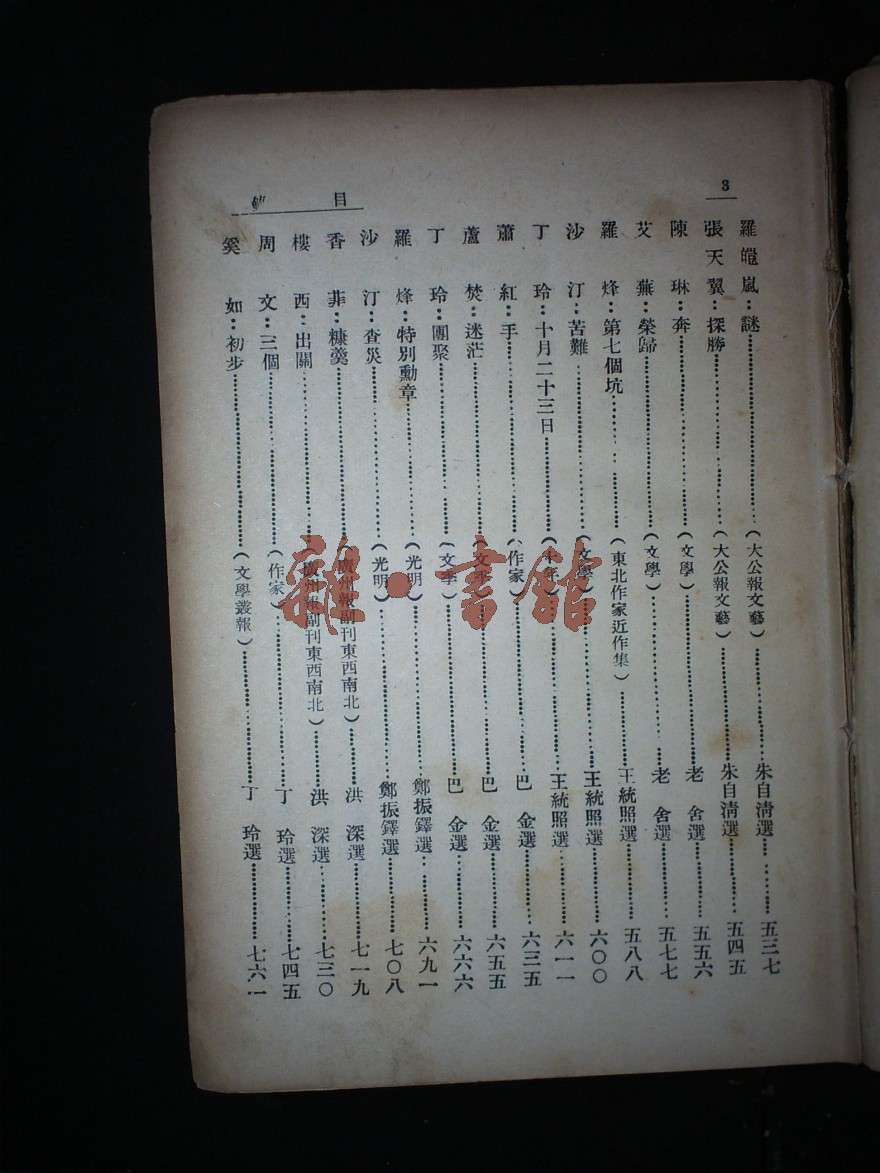 3
目
羅皚嵐：謎（大公報文藝）朱自淸選五三七
張天翼：探勝（大公報文藝）朱自淸選五四五
陳琳：奔（文學）老舍選五五六
艾蕪：榮歸（文學）老舍選五七七
羅烽：第七個坑（東北作家近作集）王統照選五八八
沙汀：苦難（文學）王統照選六〇〇
丁玲：十月二十三日王統照選六一一
蕭紅：手（作家）巴金選六三五
蘆焚：迷茫（文季）巴金選六五五
丁玲：團聚（文季）巴金選六六六
羅烽：特別勳章（光明）鄭振鐸選六九一
沙汀：查災（光明）鄭振鐸選七〇八
香菲：糠羹（廣州報副刊東西南北）洪深選七一九
樓西：出關（廣州報副刊東西南北）洪深選七三〇
周文：三個（作家）丁玲選七四五
奚如：初步（文學叢報）丁玲選七六一
雜·書館